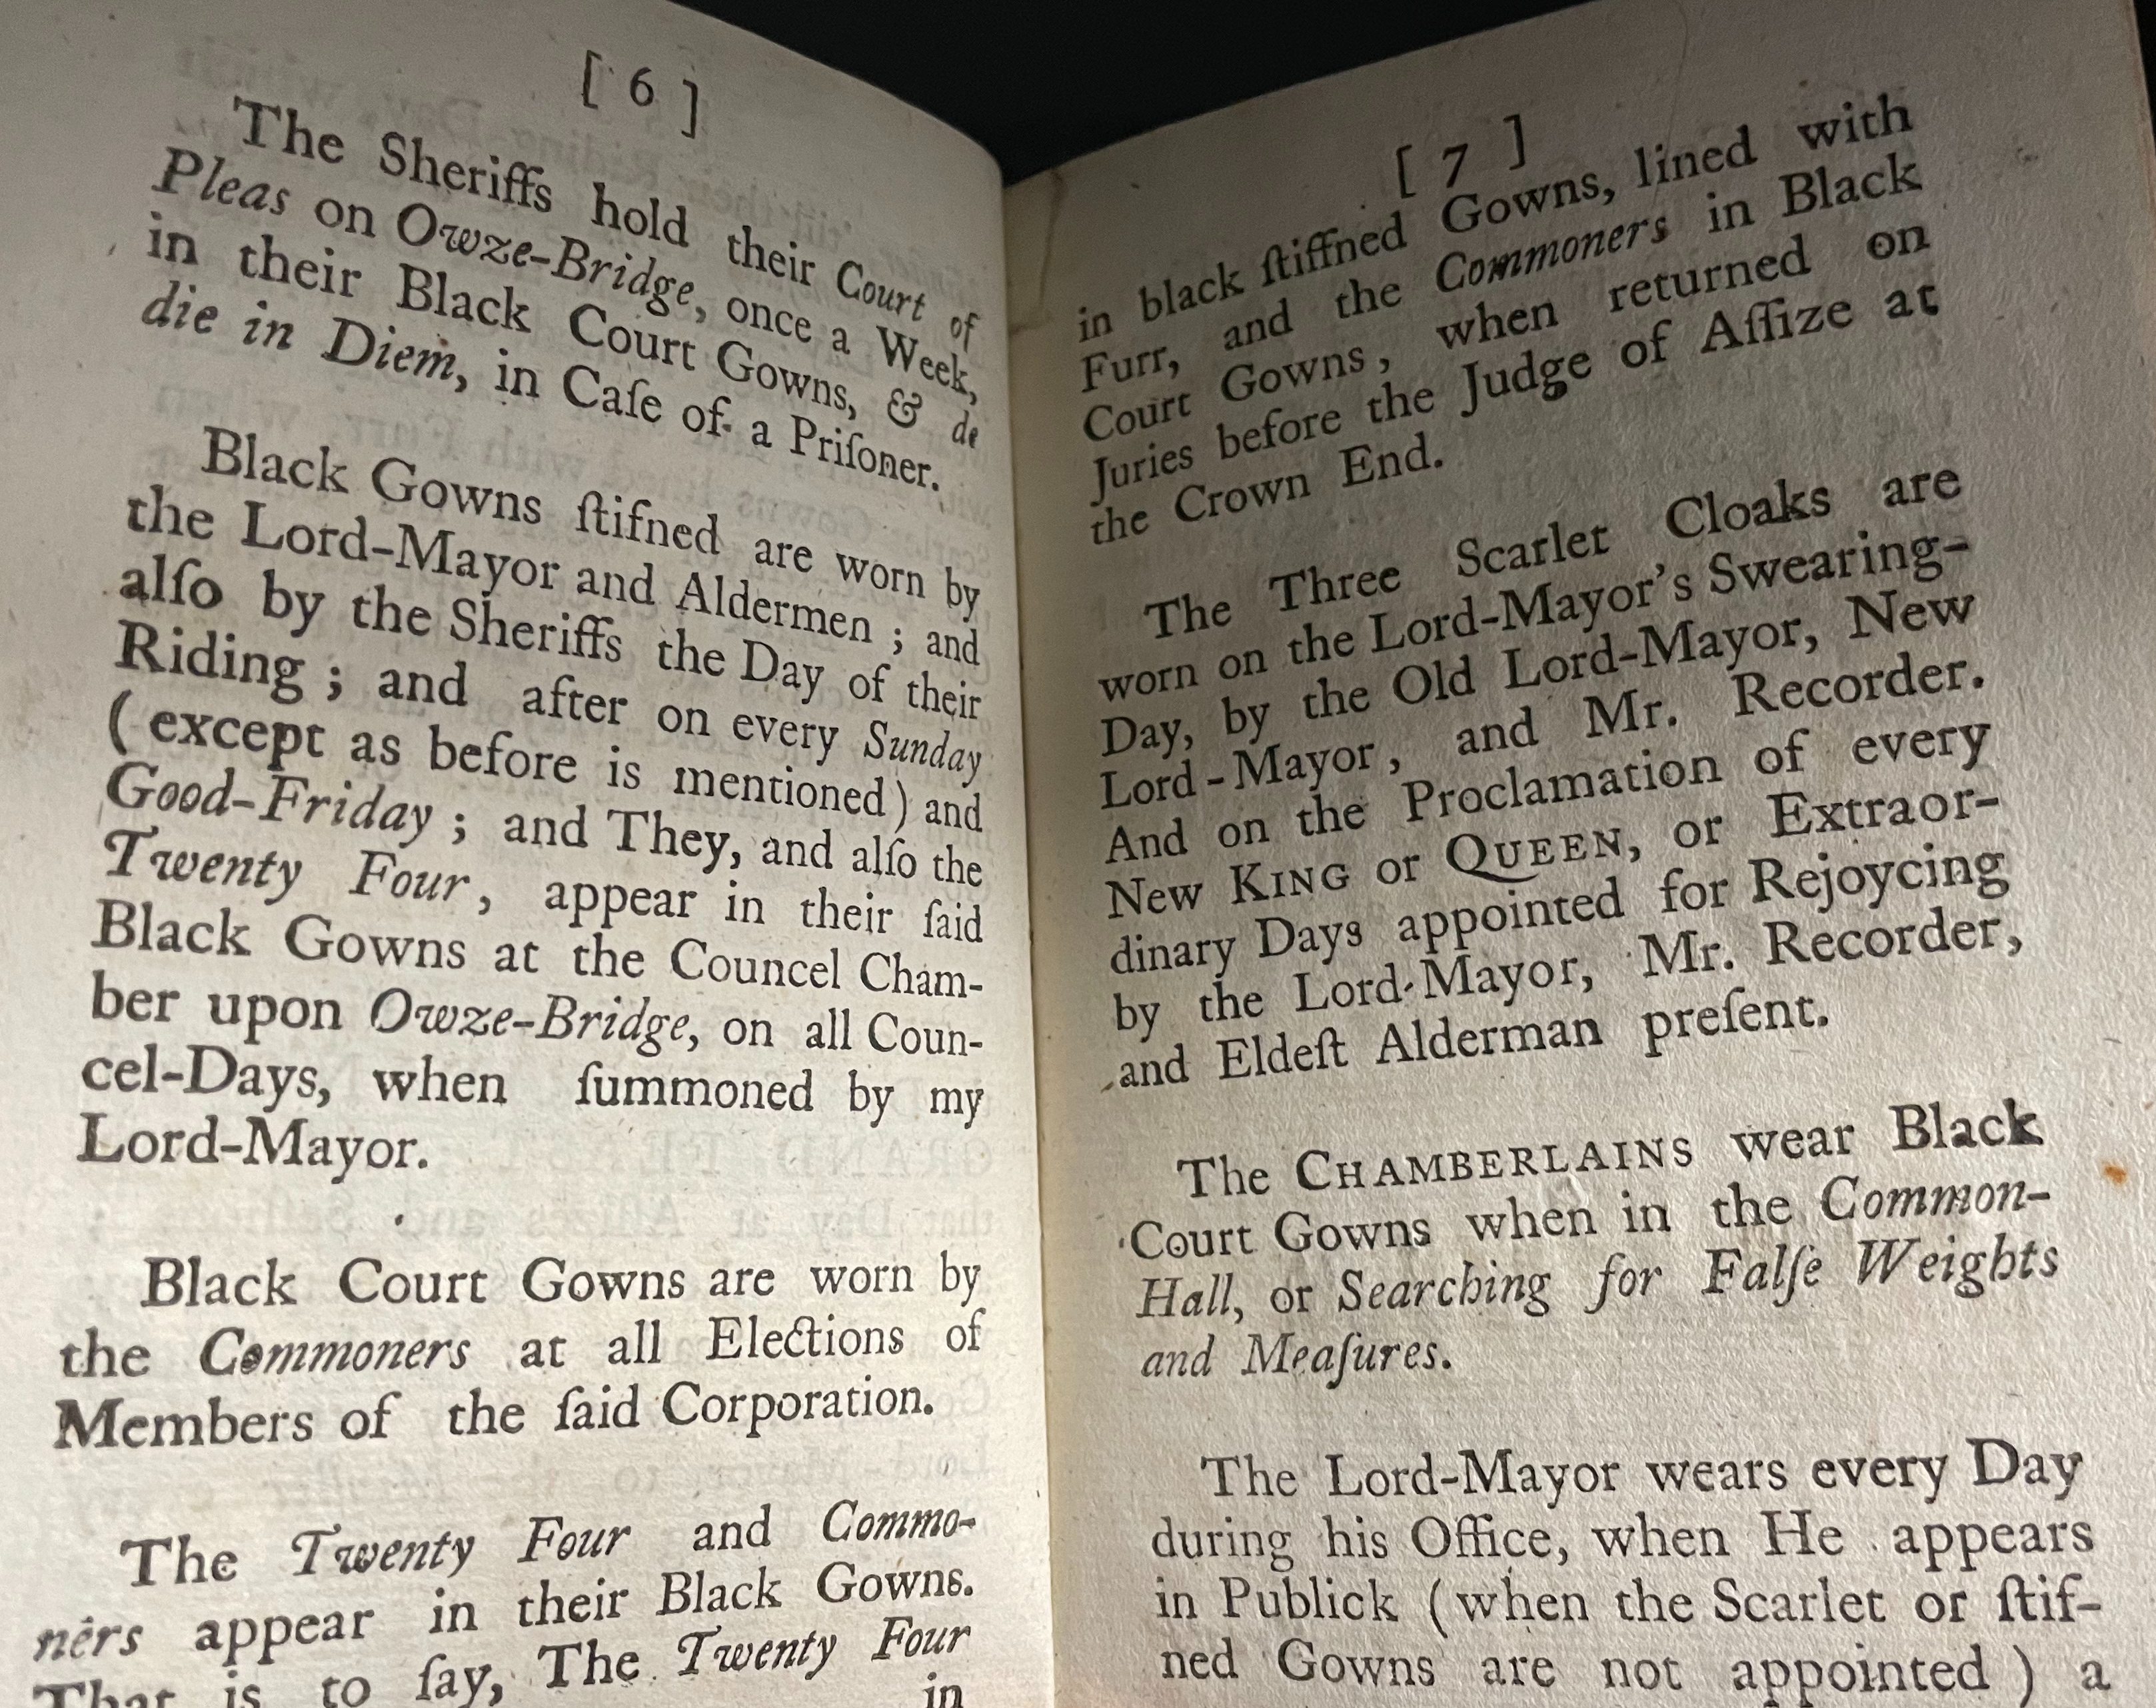 [ 6 ]
The Sheriffs hold their Court of
Pleas on Owze-Bridge, once a Week,
in their Black Court Gowns, & de
die in Diem, in Caſe of a Priſoner.
Black Gowns ſtifned are worn by
the Lord-Mayor and Aldermen ; and
alſo by the Sheriffs the Day of their
Riding ; and after on every Sunday
( except as before is mentioned ) and
Good-Friday ; and They, and alſo the
Twenty Four, appear in their ſaid
Black Gowns at the Councel Cham-
ber upon Owze-Bridge, on all Coun-
cel-Days, when ſummoned by my
Lord-Mayor.
Black Court Gowns are worn by
the Commoners at all Elections of
Members of the ſaid Corporation.
The Twenty Four and Commo-
ners appear in their Black Gowns.
That is to ſay, The Twenty Four
in
[ 7 ]
in black ſtiffned Gowns, lined with
Furr, and the Commoners in Black
Court Gowns, when returned on
Juries before the Judge of Aſſize at
the Crown End.
The Three Scarlet Cloaks are
worn on the Lord-Mayor's Swearing-
Day, by the Old Lord-Mayor, New
Lord-Mayor, and Mr. Recorder.
And on the Proclamation of every
New KING or QUEEN, or Extraor-
dinary Days appointed for Rejoycing
by the Lord-Mayor, Mr. Recorder,
and Eldeſt Alderman preſent.
The CHAMBERLAINS wear Black
Court Gowns when in the Common-
Hall, or Searching for Falſe Weights
and Meaſures.
The Lord-Mayor wears every Day
during his Office, when He appears
in Publick ( when the Scarlet or ſtif-
ned Gowns are not appointed ) a